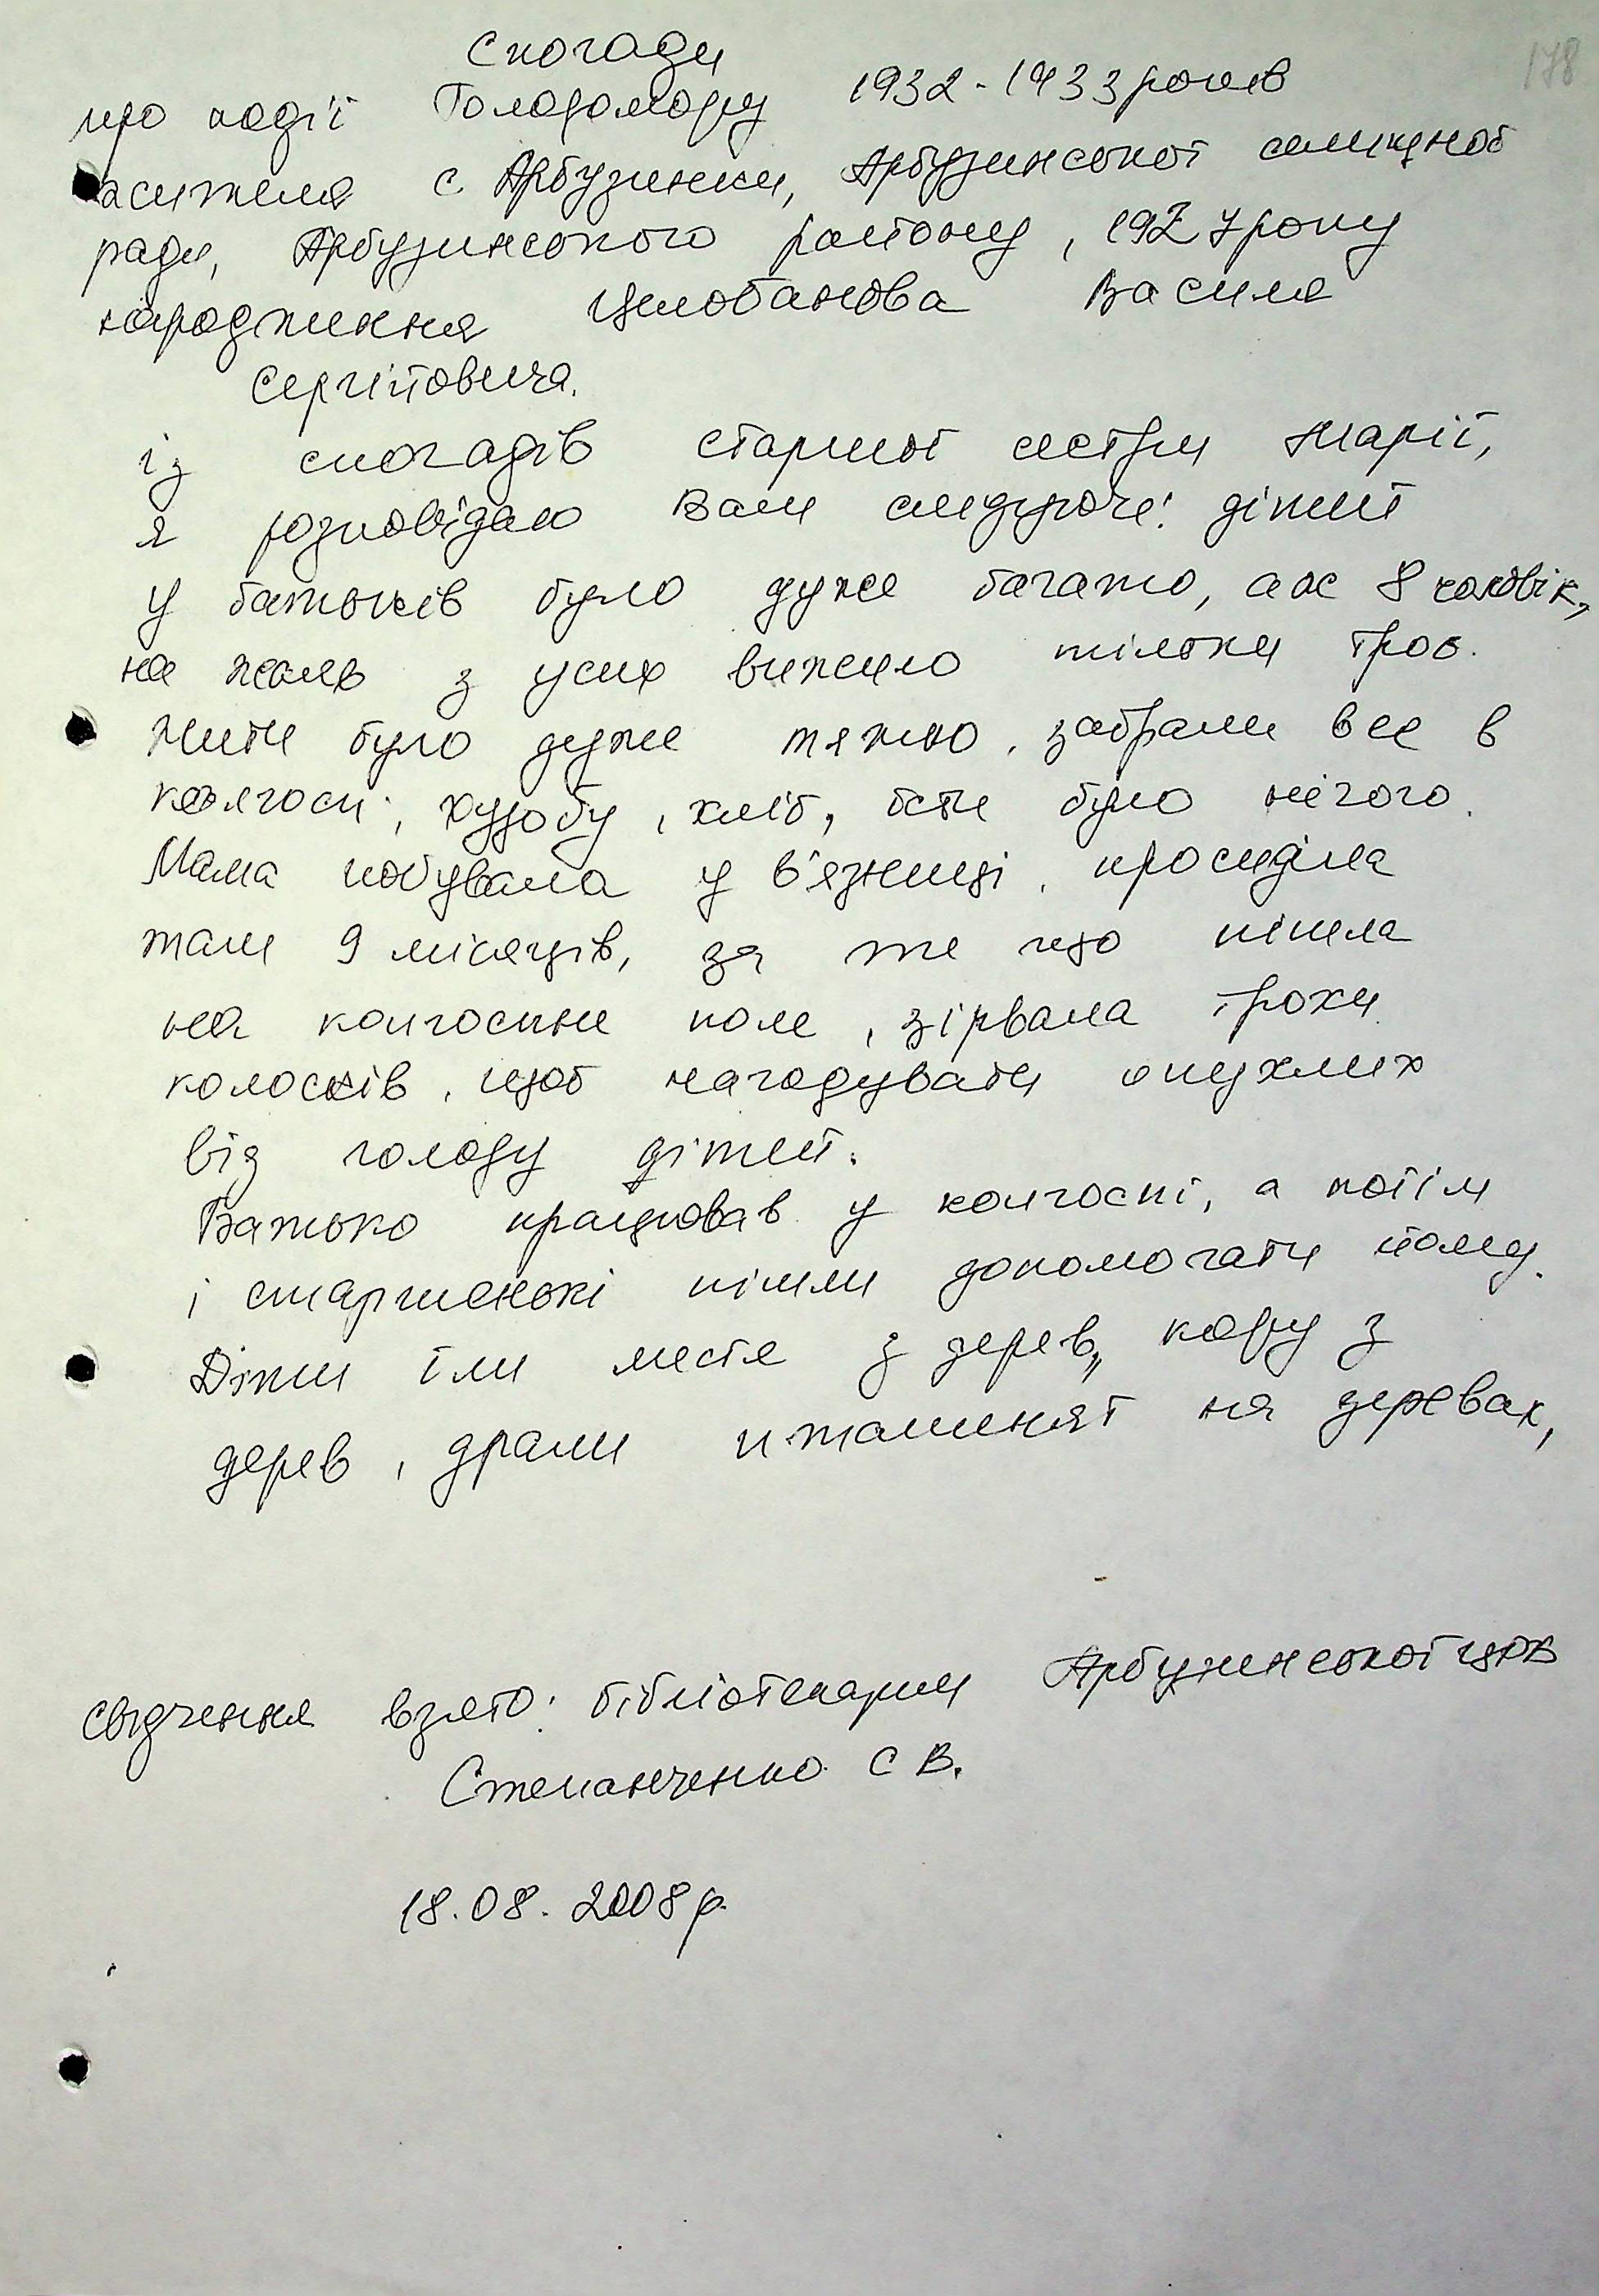 178
Спогади
про події Голодомору 1932-1933 років
жителя с. Арбузинки, Арбузинської селищної
ради, Арбузинського району, 1927 року
народження Целобанова Василя
Сергійовича.
із спогадів старшої сестри Марії,
я розповідаю Вам слідуюче: дітей
у батьків було дуже багато, аж 8 чоловік,
на жаль з усих вижило тільки троє.
Жити було дуже тяжко, забрали все в
колгосп, худобу, хліб, їсти було нічого.
Мама побувала у в'язниці, просиділа
там 9 місяців, за те що пішла
на колгоспне поле, зірвала трохи
колосків, щоб нагодувати опухлих
від голоду дітей.
Батько працював у колгоспі, а потім
і старшенькі пішли допомогати йому.
Діти їли листя з дерев, кору з
дерев, драли пташенят на деревах,
свідчення взято: бібліотекарем Арбузинської ЦРБ
Степанченко С В.
18.08.2008р.